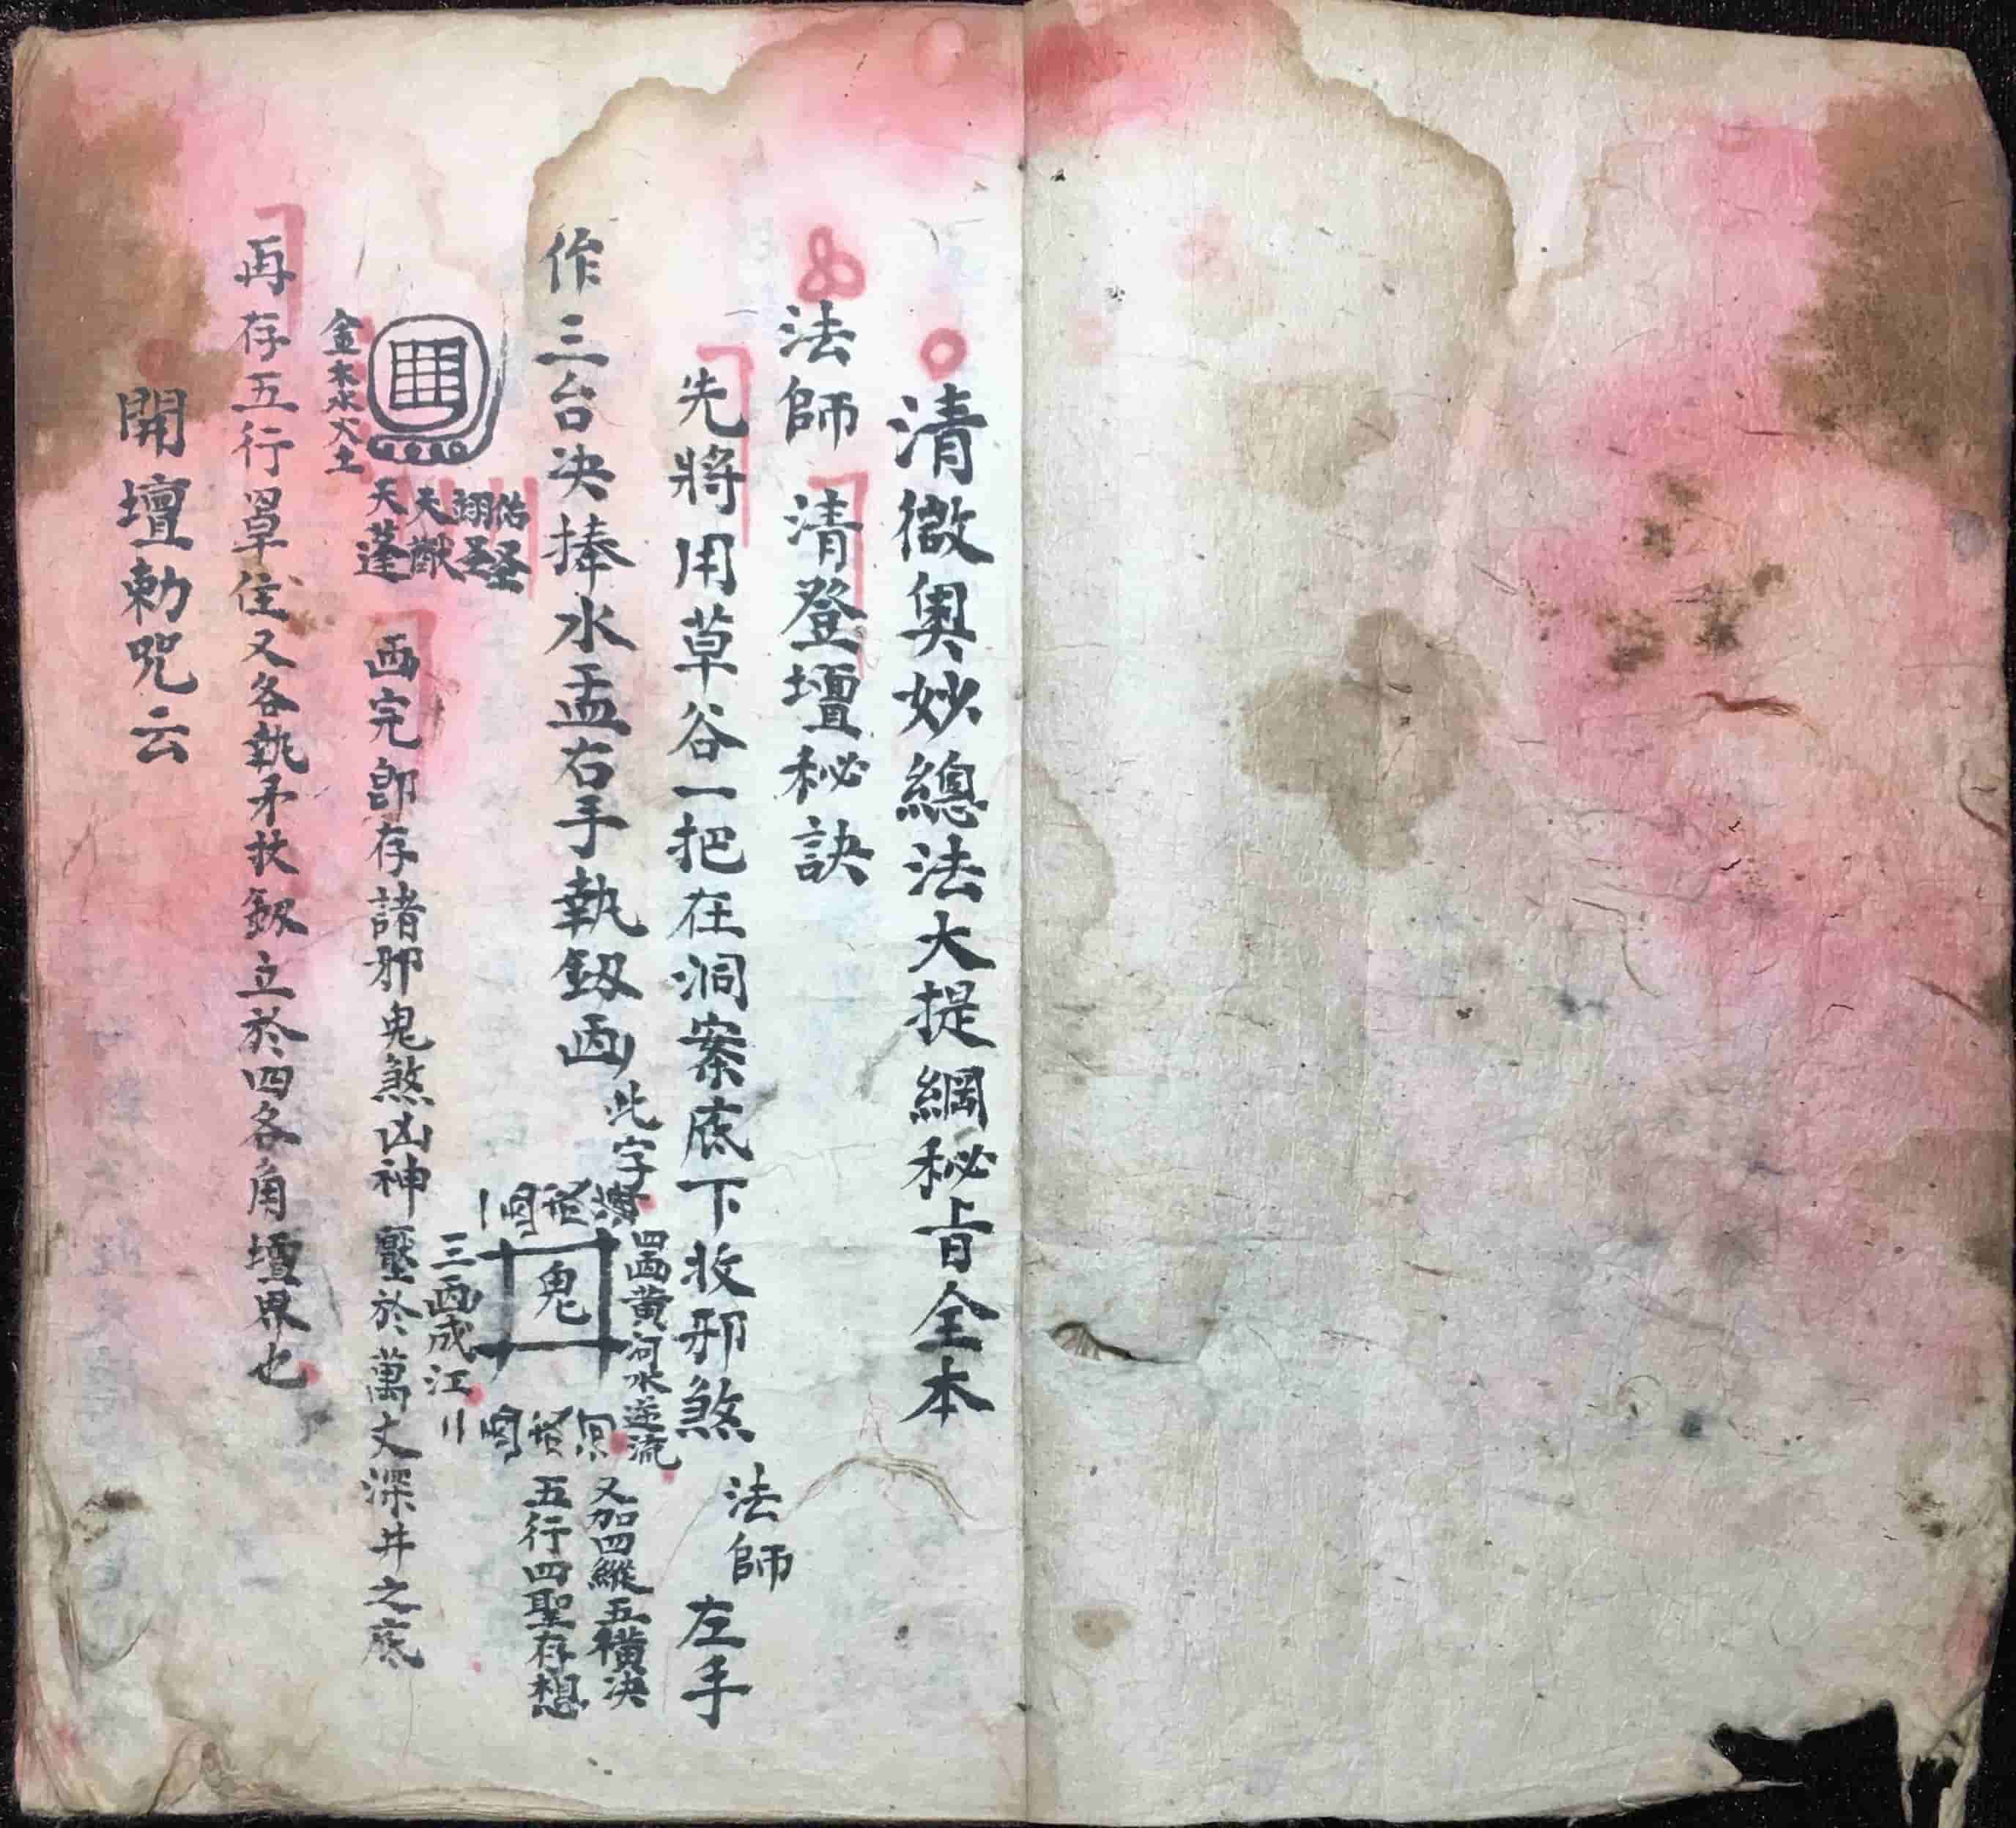 清微奧妙總法大提綱秘旨全本
法師 清登壇秘訣
先將用草谷一把在洞案底下收邪煞 法師 左手
作三台决捧水盂右手執釼画 此字
四画黄河水逆流
鬼
三画成江
又加四縱五横决
五行四聖存想
佑圣
翊圣
天猷
天蓬
金木水火土
画完卽存諸邪鬼煞凶神壓於萬丈深井之底
再存五行罩住又各執矛扙釼立於四各角壇界也
開壇勅咒云